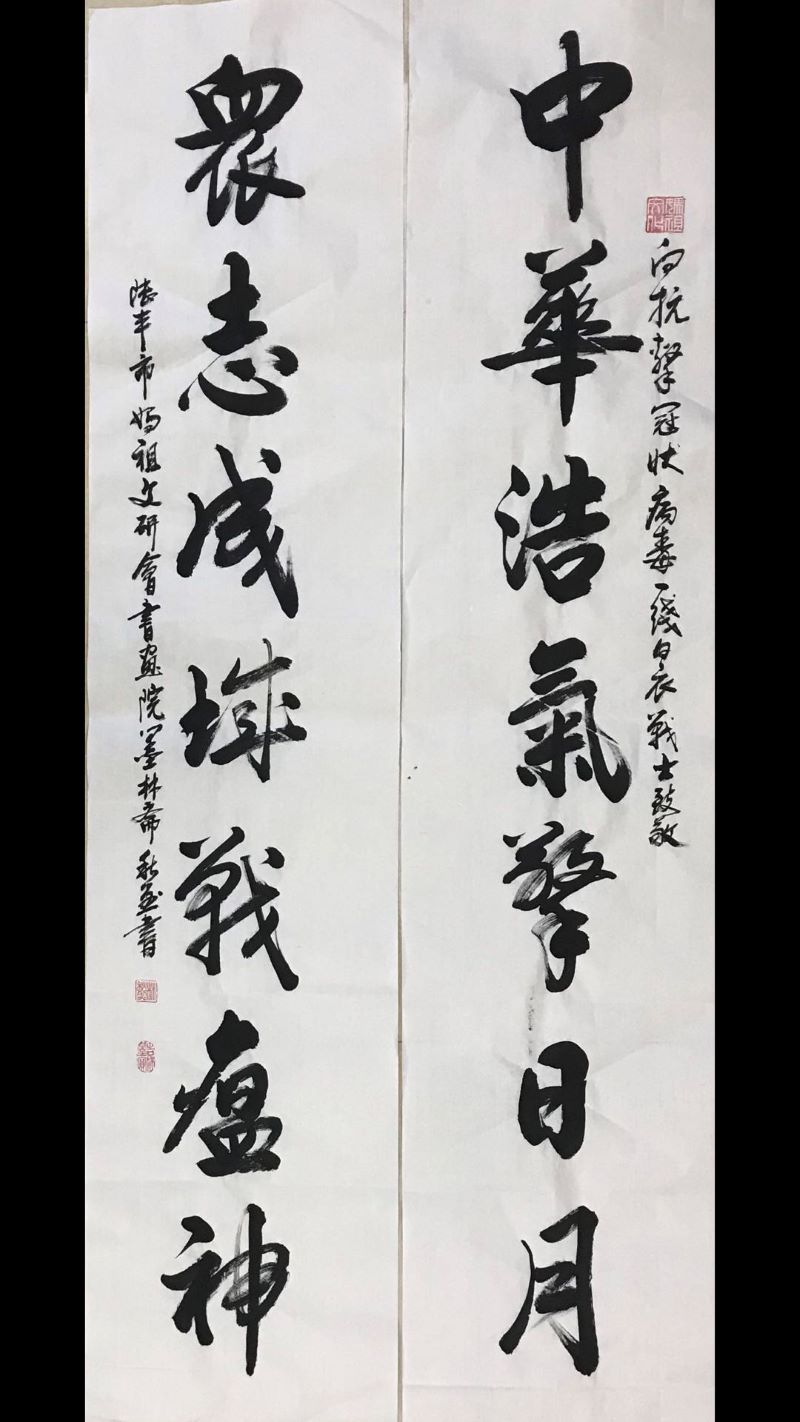 向抗擊冠狀病毒一线白衣戰士致敬
中華浩氣擎日月
衆志成城戰瘟神
陸丰市妈祖文研會書画院墨林斋秋並書